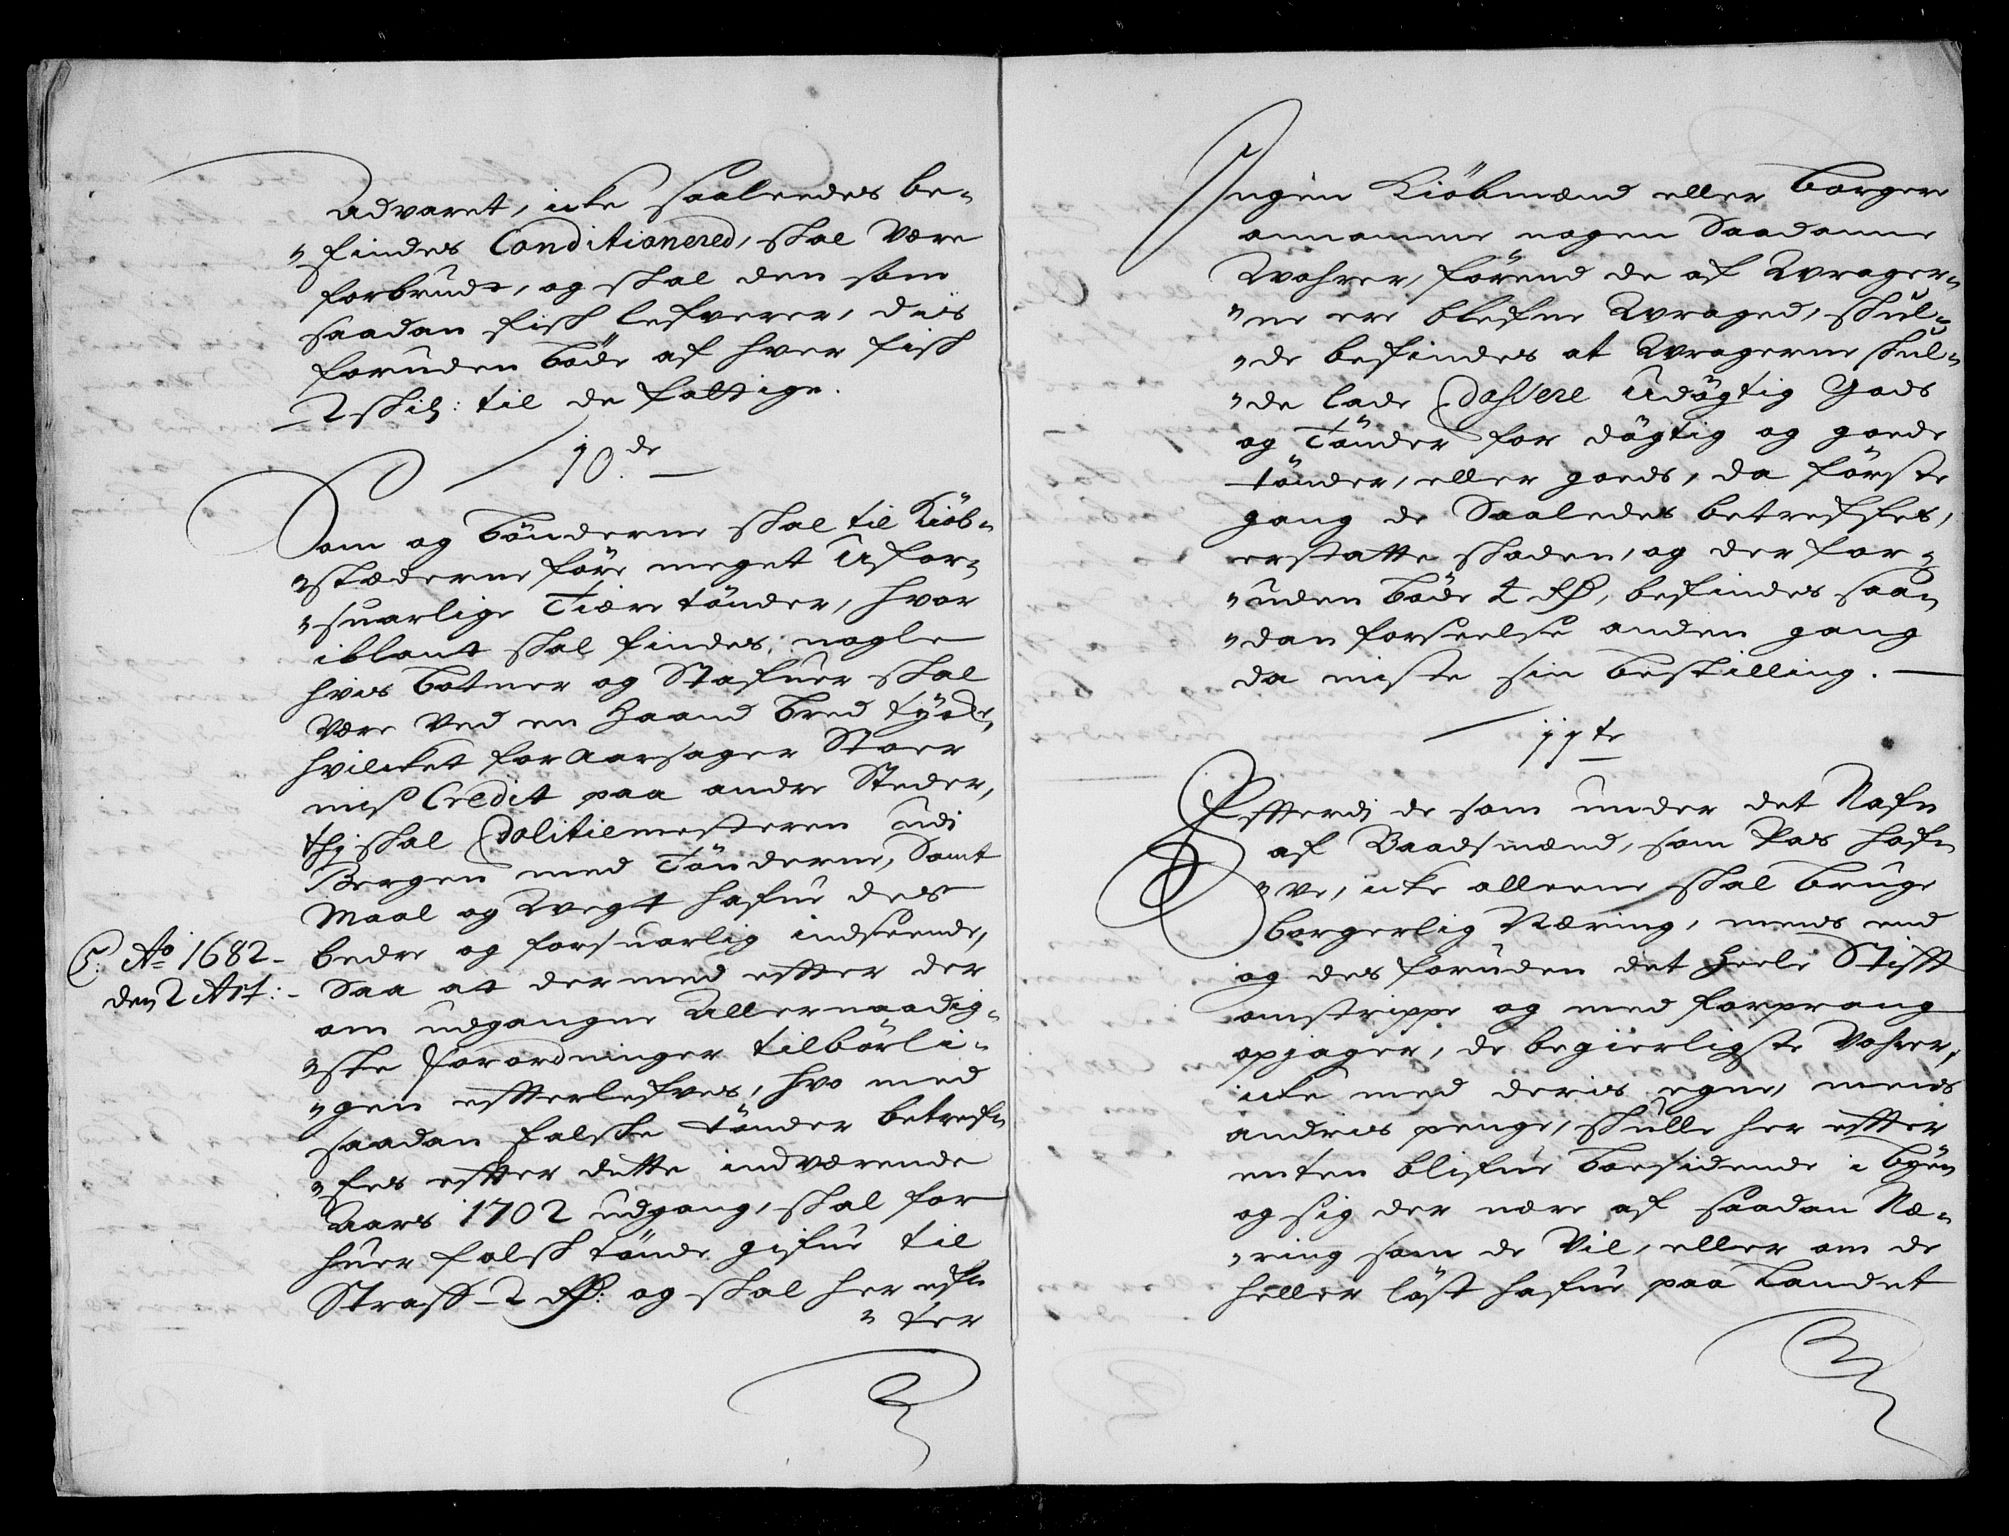 advaret, icke saaleedes be-
"findes Conditionered, skal være
forbrudt, og skal den som
saadan fisk lefverer, dis
foruden bøde af hver fisk
2 skil: til de fattige.
10.de
Som og bønderne skal til Kiøb-
"stæderne føre meget Ufor-
"suarlige Tiære tønder, hvor
iblant skal findes nogle
hvis botner og Stafver skal
være ved en Haand bred tyck,
hvilcket foraarsager Stoer
mis Credit paa andre Steder,
thj skal Politiemesteren udi
Bergen med Tønderne, Samt
Maal og Vegt hafve des
bedre og forsuarlig indseende,
C: Ao 1682-
den 2 Art:-
Saa at dermed efter der
om udgangne Allernaadig-
"ste forordninger tilbørli-
"gen efterlefves, hvo med
saadan falske tønder betref-
"fes efter dette indværende
Aars 1702 udgang, skal for
huer falsk tønde gifve til
Straff 2 Rdr: og skal her ef-
"ter
Ingen Kiøbmænd eller borgere
annamme nogen Saadanne
Wahrer, førend de af Wrager-
"ne ere blefne Wraged, skul-
"de befindes at Wragerne skul-
"de lade Passere Udøgtig Gods
og Tønder for døgtig og goede
tønder, eller goeds, da første
gang de Saaledes betreffes,
erstatte skaden, og der for-
"uden bøde 4 Rdr, befindes saa-
"dan forseelse anden gang
da miste sin bestilling.
11te
Efterdi de som under det Nafn
af Baadsmænd, som Pas haf-
"ve, icke alleene skal bruge
borgerlig Næring, mens end
og des foruden det Heele Stift
omstrippe og med forprang
opjager, de begierligste Vahrer,
icke med deris egne, mens
andris penge, skulle her efter
enten blifve boesidende i byen
og sig der nære af saadan Næ-
"ring som de vil, eller om de
heller løst hafve paa Landet